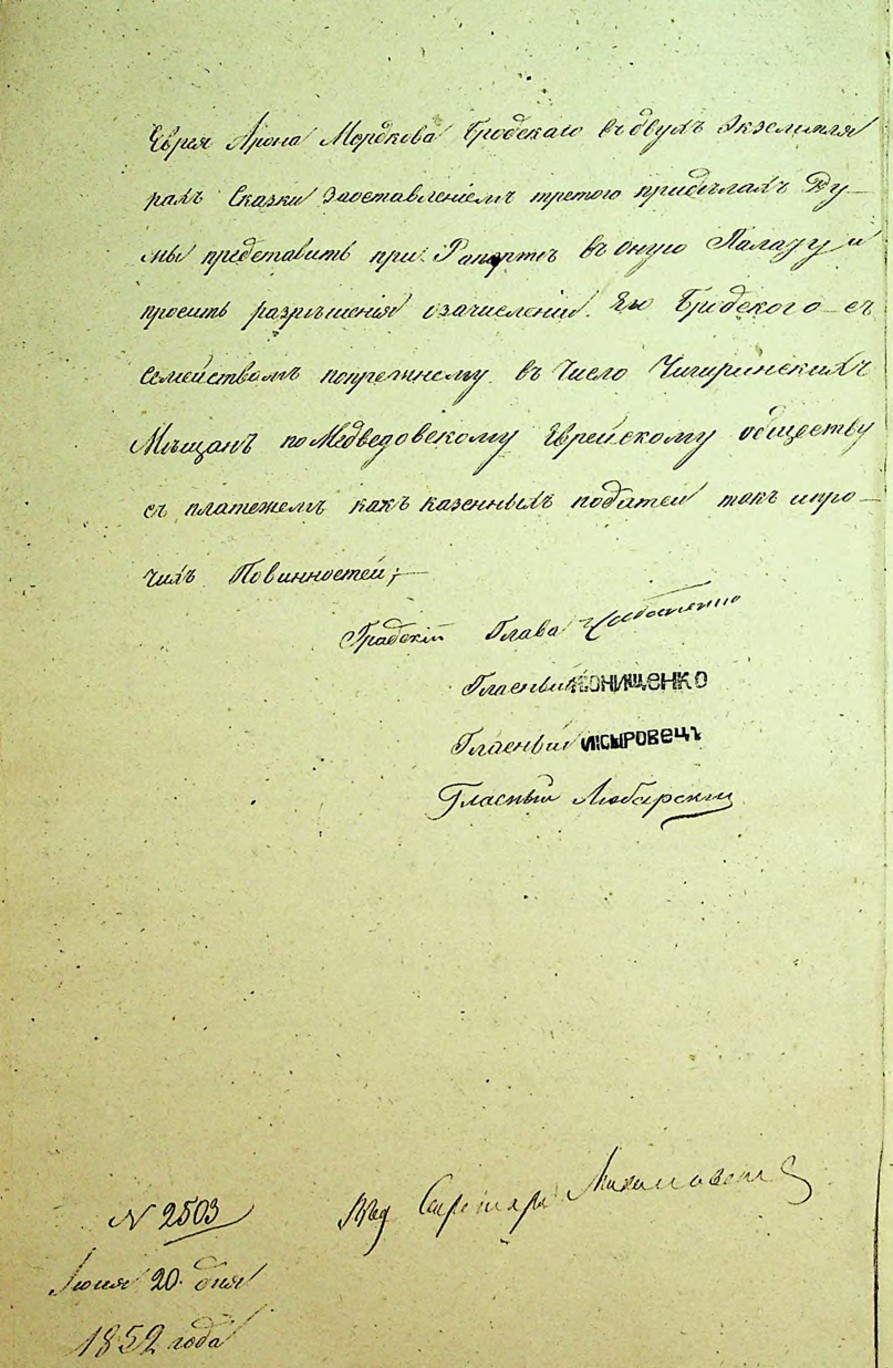 Еврея Арона Мордкова Бродскаго въ двухъ Экземпля
рахъ Сказки Заоставленіемъ третого придѣлахъ Ду—
мы представить при Рапортѣ въ оную Палату и
просить разрѣшенія озачисленіи Его Бродского съ
семействомъ попрежнему въ Число Чигиринскихъ
Мѣщанъ по Медведовскому Еврейскому обществу
съ платежемъ какъ казенныхъ податей такъ ипро—
чихъ Повинностей;—
Градскій Глава
Гласный КОНИЩЕНКО
Гласный И.СЫРОВЕЦЪ
Гласный Любарскій
N 2503
Июня 20. дня
1852 года